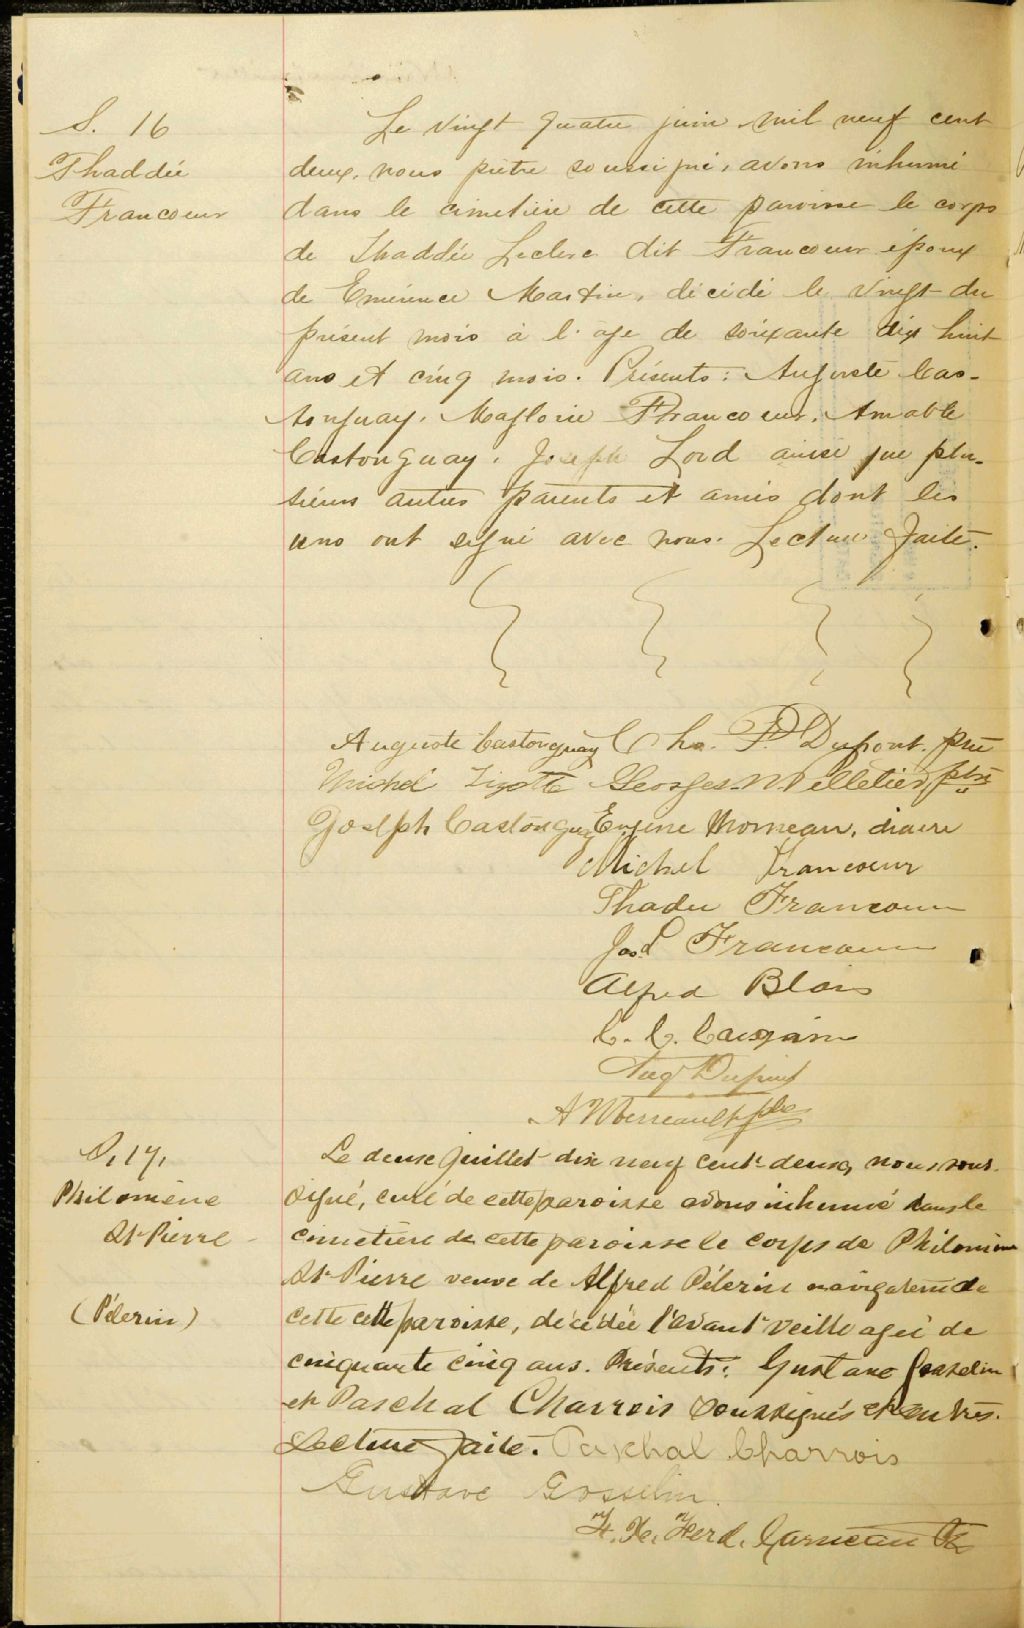 S. 16
Thaddée
Francoeur
Le vingt quatre juin mil neuf cent
deux, nous prêtre soussigné, avons inhumé
dans le cimetière de cette paroisse le corps
de Thaddée Leclerc dit Francoeur époux
de Emérence Martin, décédé le vingt du
présent mois à l'age de soixante dix huit
ans et cinq mois. Présents: Auguste Cas-
tonguay, Magloire Francoeur, Amable
Castonguay, Joseph Lord ainsi que plu-
sieurs autres parents et amis dont les
uns ont signé avec nous. Lecture faite.
Auguste Castonguay Chs. F. Dupont. ptre
Michel Lizotte Georges N. Pelletier, ptre
Joseph Castonguay Eugène Morneau, diacre
Michel Francoeur
Thadee Francoeur
Jos. L Francoeur
Alfred Blais
C. C.
Aug Dupont
ptre
S. 17.
Philomène
St Pierre
(Pélerin)
Le deux Juillet dix neuf cent deux, nous sous-
signé, curé de cette paroisse avons inhumé dans le
cimetière de cette paroisse le corps de Philomène
St Pierre veuve de Alfred Pélerin navigateur de
cette cette paroisse, décédée l'avant veille agée de
cinquante cinq ans. Présents: Gustave Gosselin
et Paschal Charrois soussignés et autres.
Lecture faite. Paschal Charrois
Gustave Gosselin.
F. X. Ferd. Garneau